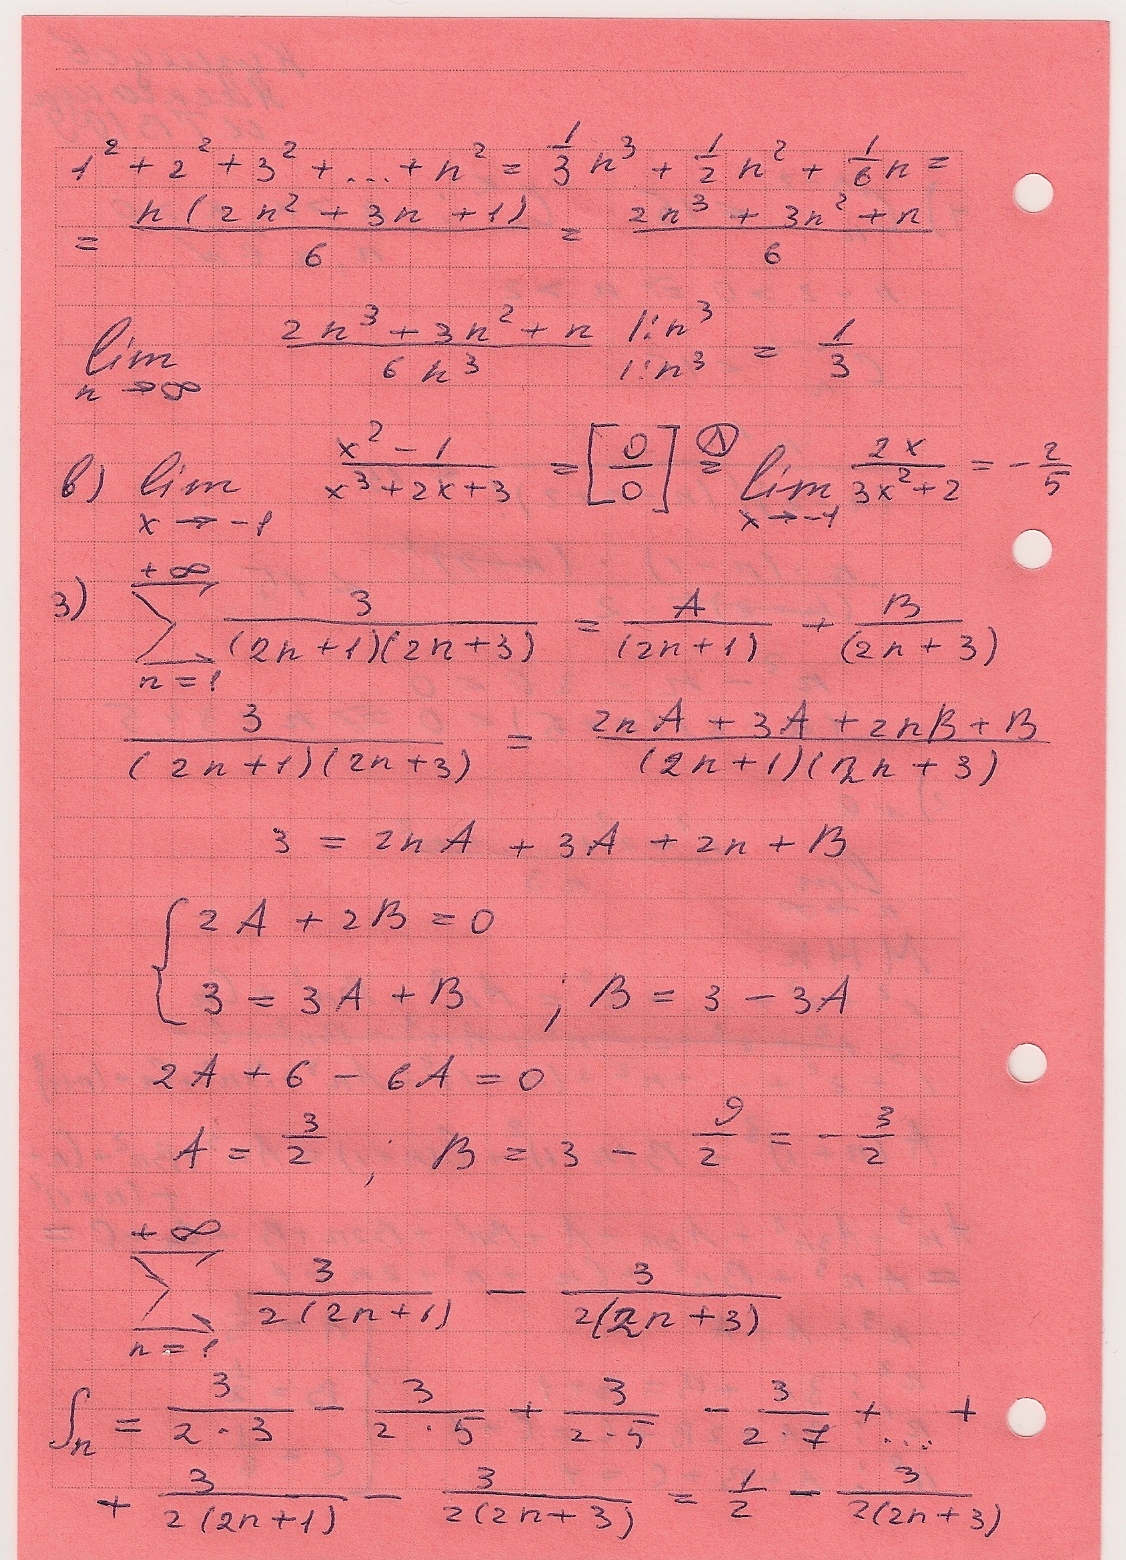 1² + 2² + 3² + ... + n² = 1/3 n³ + 1/2 n² + 1/6 n =
= n(2n² + 3n + 1)/6 = (2n³ + 3n² + n)/6
lim n→∞ (2n³ + 3n² + n)/(6n³) |:n³/|:n³ = 1/3
в) lim x→-1 (x² - 1)/(x³ + 2x + 3) = [0/0] =Ⓛ lim x→-1 2x/(3x² + 2) = -2/5
3) +∞ Σ n=1 3/((2n+1)(2n+3)) = A/(2n+1) + B/(2n+3)
3/((2n+1)(2n+3)) = (2nA + 3A + 2nB + B)/((2n+1)(2n+3))
3 = 2nA + 3A + 2n + B
{ 2A + 2B = 0
3 = 3A + B ; B = 3 - 3A
2A + 6 - 6A = 0
A = 3/2 ; B = 3 - 9/2 = -3/2
+∞ Σ n=1 3/(2(2n+1)) - 3/(2(2n+3))
Sn = 3/(2·3) - 3/(2·5) + 3/(2·5) - 3/(2·7) + ... +
+ 3/(2(2n+1)) - 3/(2(2n+3)) = 1/2 - 3/(2(2n+3))